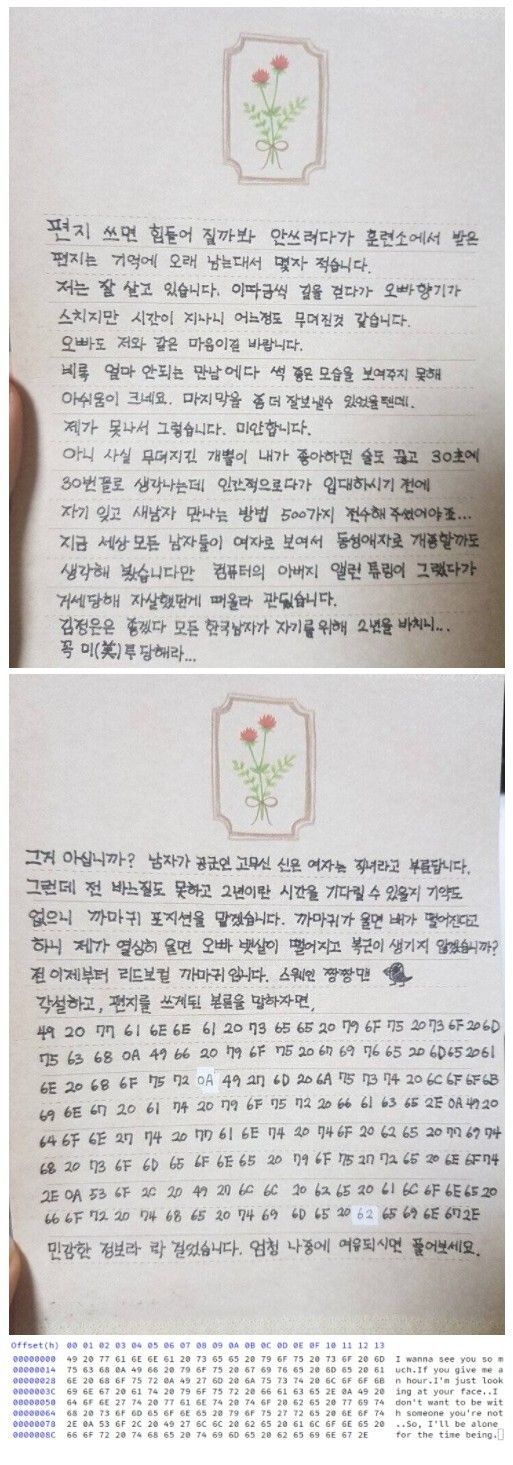 편지 쓰면 힘들어 질까봐 안쓰려다가 훈련소에서 받은
편지는 기억에 오래 남는대서 몇자 적습니다.
저는 잘 살고 있습니다. 이따금씩 길을 걷다가 오빠향기가
스치지만 시간이 지나니 어느정도 무뎌진것 같습니다.
오빠도 저와 같은 마음이길 바랍니다.
비록 얼마 안되는 만남에다 썩 좋은 모습을 보여주지 못해
아쉬움이 크네요. 마지막을 좀 더 잘보낼수 있었을텐데.
제가 못나서 그렇습니다. 미안합니다.
아니 사실 무뎌지긴 개뿔이 내가 좋아하던 술도 끊고 30초에
30번꼴로 생각나는데 인간적으로다가 입대하시기 전에
자기 잊고 새남자 만나는 방법 500가지 전수해주셨어야죠...
지금 세상 모든 남자들이 여자로 보여서 동성애자로 개종할까도
생각해 봤습니다만 컴퓨터의 아버지 앨런 튜링이 그랬다가
거세당해 자살했던게 떠올라 관뒀습니다.
김정은은 좋겠다 모든 한국남자가 자기를 위해 2년을 바치니...
꼭 미(美)투 당해라...
그거 아십니까? 남자가 공군인 고무신 신은 여자는 직녀라고 부른답니다.
그런데 전 바느질도 못하고 2년이란 시간을 기다릴 수 있을지 기약도
없으니 까마귀 포지션을 맡겠습니다. 까마귀가 울면 배가 떨어진다고
하니 제가 열심히 울면 오빠 뱃살이 떨어지고 복근이 생기지 않겠습니까?
전 이제부터 리드보컬 까마귀입니다. 스웩인 짱짱맨
각설하고, 편지를 쓰게된 본론을 말하자면,
49 20 77 61 6E 6E 61 20 73 65 65 20 79 6F 75 20 73 6F 20 6D
75 63 68 0A 49 66 20 79 6F 75 20 67 69 76 65 20 6D 65 20 61
6E 20 68 6F 75 72 0A 49 27 6D 20 6A 75 73 74 20 6C 6F 6F 6B
69 6E 67 20 61 74 20 79 6F 75 72 20 66 61 63 65 2E 0A 49 20
64 6F 6E 27 74 20 77 61 6E 74 20 74 6F 20 62 65 20 77 69 74
68 20 73 6F 6D 65 6F 6E 65 20 79 6F 75 27 72 65 20 6E 6F 74
2E 0A 53 6F 2C 20 49 27 6C 6C 20 62 65 20 61 6C 6F 6E 65 20
66 6F 72 20 74 68 65 20 74 69 6D 65 20 62 65 69 6E 67 2E
민감한 정보라 락 걸었습니다. 엄청 나중에 여유되시면 풀어보세요.
Offset(h) 00 01 02 03 04 05 06 07 08 09 0A 0B 0C 0D 0E 0F 10 11 12 13
00000000 49 20 77 61 6E 6E 61 20 73 65 65 20 79 6F 75 20 73 6F 20 6D I wanna see you so m
00000014 75 63 68 0A 49 66 20 79 6F 75 20 67 69 76 65 20 6D 65 20 61 uch.If you give me a
00000028 6E 20 68 6F 75 72 0A 49 27 6D 20 6A 75 73 74 20 6C 6F 6F 6B n hour.I'm just look
0000003C 69 6E 67 20 61 74 20 79 6F 75 72 20 66 61 63 65 2E 0A 49 20 ing at your face..I
00000050 64 6F 6E 27 74 20 77 61 6E 74 20 74 6F 20 62 65 20 77 69 74 don't want to be wit
00000064 68 20 73 6F 6D 65 6F 6E 65 20 79 6F 75 27 72 65 20 6E 6F 74 h someone you're not
00000078 2E 0A 53 6F 2C 20 49 27 6C 6C 20 62 65 20 61 6C 6F 6E 65 20 ..So, I'll be alone
0000008C 66 6F 72 20 74 68 65 20 74 69 6D 65 20 62 65 69 6E 67 2E for the time being.